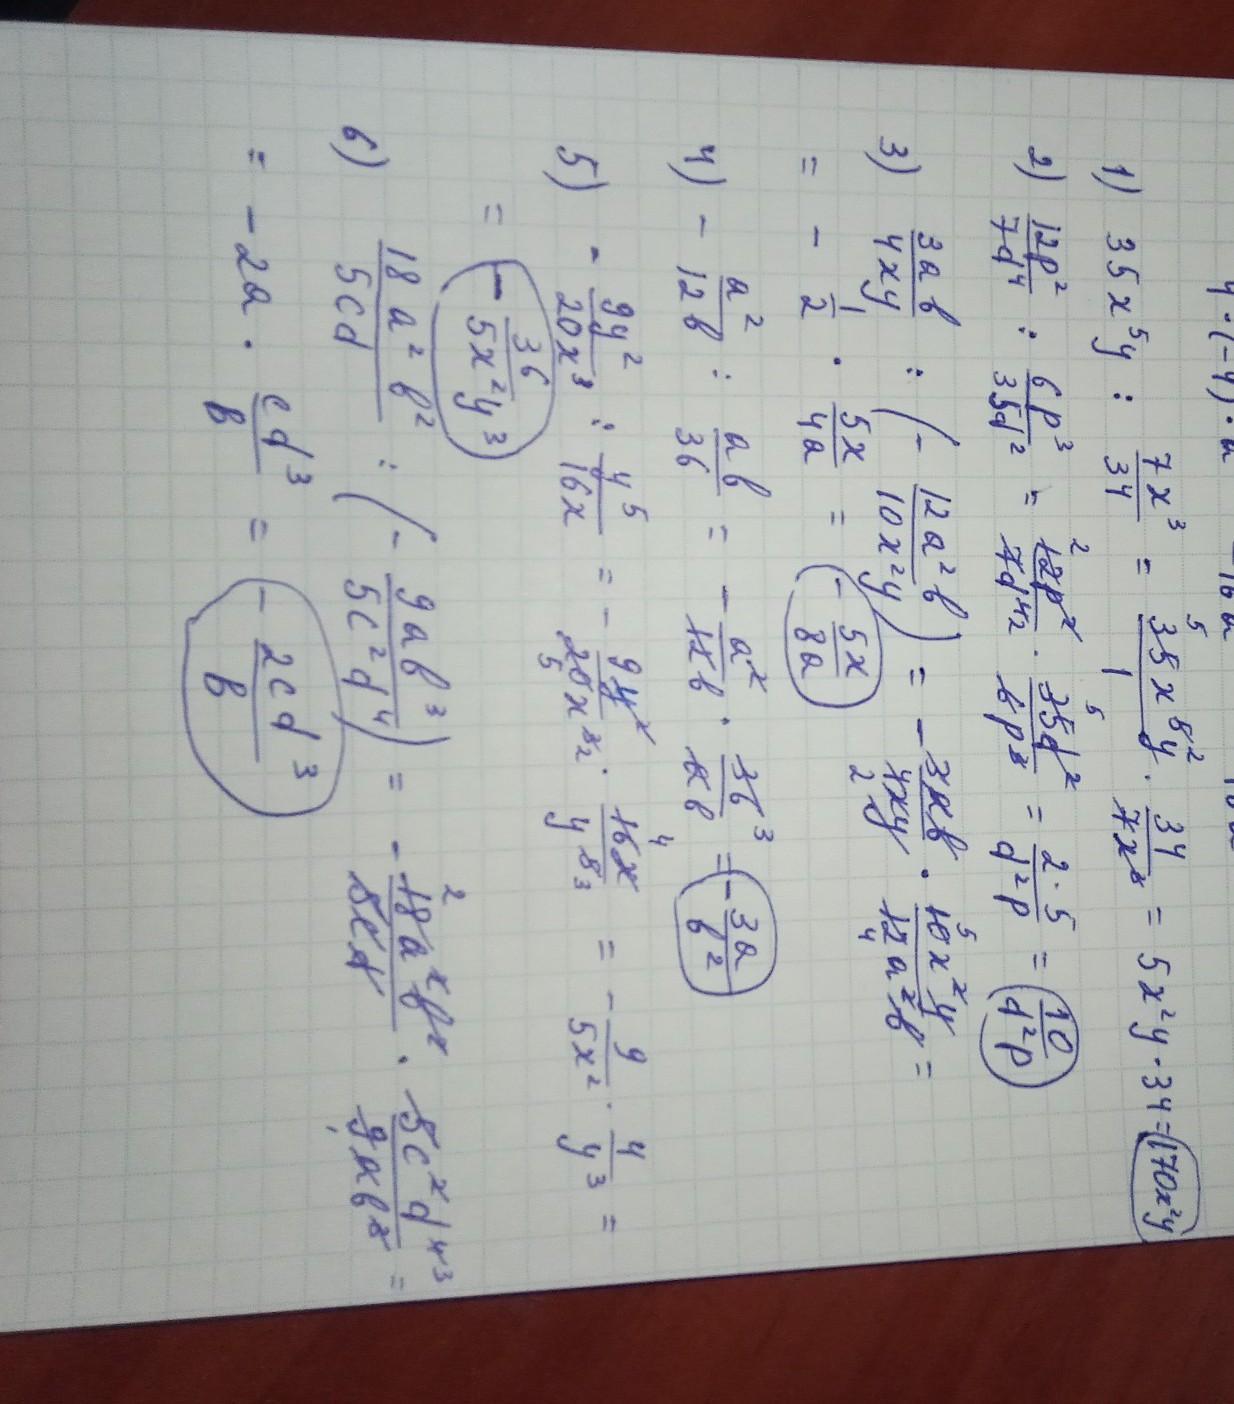 4·(-4)·a
1) 35x⁵y : 7x³/34 = 35x⁵y/1 · 34/7x³ = 5x²y·34 = 170x²y
2) 12p²/7d⁴ : 6p³/35d² = 12p²/7d⁴ · 35d²/6p³ = 2·5/d²p = 10/d²p
3) 3ab/4xy : (- 12a²b/10x²y) = - 3ab/4xy · 10x²y/12a²b =
= - 1/2 · 5x/4a = - 5x/8a
4) - a²/12b : ab/36 = - a²/12b · 36/ab = - 3a/b²
5) - 9y²/20x³ : y⁵/16x = - 9y²/20x³ · 16x/y⁵ = - 9/5x² · 4/y³ =
= - 36/5x²y³
6) 18a²b²/5cd : (- 9ab³/5c²d⁴) = - 18a²b²/5cd · 5c²d⁴/9ab³ =
= - 2a · cd³/b = - 2cd³/b